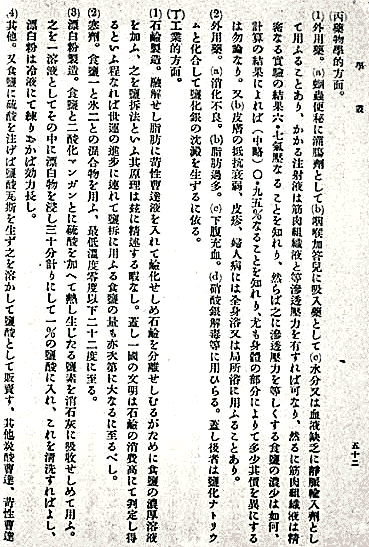 學叢
五十二
(丙)藥物學的方面。
(1)外用藥。(a)蟯蟲便秘に瀉腸劑として(b)咽喉加答兒に吸入藥として(c)水分又は血液缺乏に靜脈輸入劑とし
て用ふることあり、かかる注射液は筋肉組織液と等滲透壓力を有すれば可なり、然るに筋肉組織液は精
密なる實驗の結果六・七氣壓なることを知れり、然らば之に滲透壓力を等しくする食鹽の濃少は如何、
計算の結果によれば(中略)〇・九五%なることを知れり、尤も身體の部分によりて多少其價を異にする
は勿論なり。又(b)皮膚の抵抗衰弱、皮疹、婦人病には全身浴又は局所浴に用ふることあり。
(2)外用藥。(a)消化不良。(b)脂肪過多。(c)下腹充血。(d)硝酸銀解毒等に用ひらる。蓋し後者は鹽化ナトリウ
ムと化合して鹽化銀の沈澱を生ずるに依る。
(丁)工業的方面。
(1)石鹼製造。融解せし脂肪に苛性曹達液を入れて鹼化せしめ石鹼を分離せしむるがために食鹽の濃厚溶液
を加ふ、之を鹽拆法といふ其原理は玆に精述する暇なし。蓋し一國の文明は石鹼の消費高にて判定し得
るといふ程なれば世運の進步に連れて鹽拆に用ふる食鹽の量も亦次第に大なるに至るべし。
(2)寒劑。食鹽一と氷二との混合物を用ふ、最低溫度零度以下二十二度に至る。
(3)漂白粉製造。食鹽と二酸化マンガンとに硫酸を加へて熱し生じたる鹽素を消石灰に吸收せしめて用ふ。
之を一溶液としてその中に漂白物を浸し三十分計りにして一%の鹽酸に入れ、これを淸洗すればよし、
漂白粉は冷液にて練りおかば効力長し。
(4)其他。又食鹽に硫酸を注げば鹽酸瓦斯を生ず之を溶かして鹽酸として販賣す、其他炭酸曹達、苛性曹達